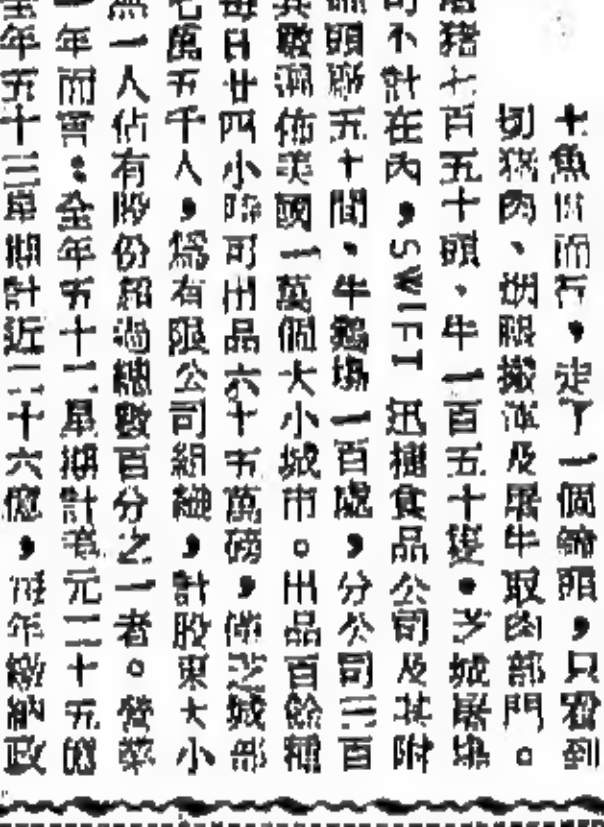 十魚貫而行，走了一個鐘頭，只看到
切豬肉、燻腿搬運及屠牛取肉部門。
豬七百五十頭、牛一百五十隻。芝城屠場
不計在內，SWIFT 迅捷食品公司及其附
頭廠五十間、牛鷄場一百處，分公司三百
其散瀰佈美國一萬個大小城市。出品百餘種
每日廿四小時可出品六十五萬磅，僅芝城部
七萬五千人，爲有限公司組織，計股東大小
無一人佔有股份超過總數百分之一者。營業
一年而言：全年五十二星期計美元二十五億
全年五十二星期計近二十六億，每年繳納政